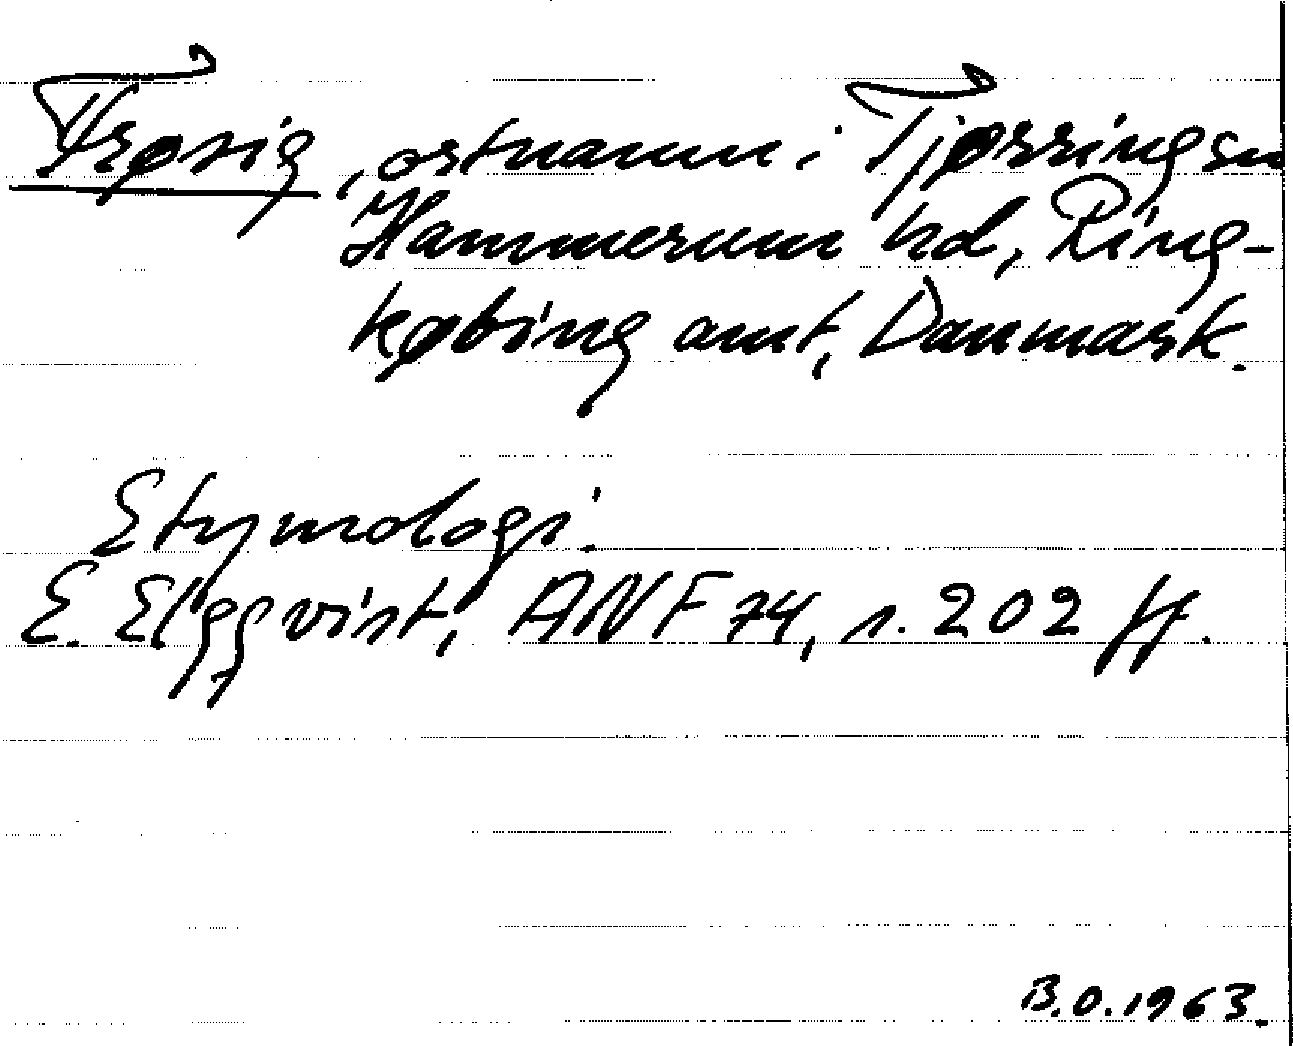 Frøsig, ortnamn i Tjørring sn
Hammerum hd, Ring-
købing amt, Danmark.
Etymologi.
E. Elgqvist, ANF 74, s. 202 ff.
B.O. 1963.